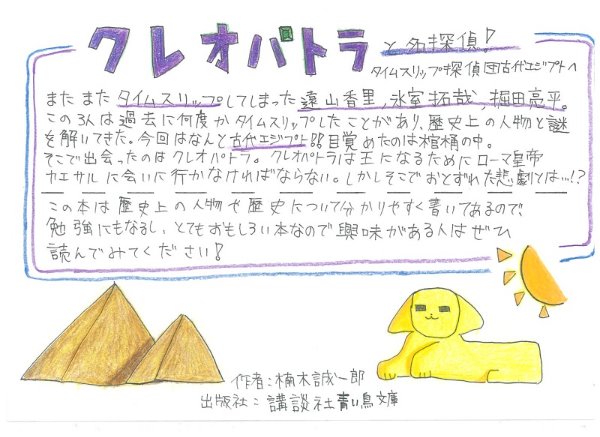 クレオパトラと名探偵!
タイムスリップ探偵団古代エジプトへ
またまたタイムスリップしてしまった遠山香里,氷室拓哉,堀田亮平。
この3人は過去に何度かタイムスリップしたことがあり、歴史上の人物と謎
を解いてきた。今回はなんと古代エジプト!!目覚めたのは棺桶の中。
そこで出会ったのはクレオパトラ。クレオパトラは王になるためにローマ皇帝
カエサルに会いに行かなければならない。しかしそこでおとずれた悲劇とは…!?
この本は歴史上の人物や歴史について分かりやすく書いてあるので、
勉強にもなるし、とてもおもしろい本なので興味がある人はぜひ
読んでみてください!
作者:楠木誠一郎
出版社:講談社青い鳥文庫